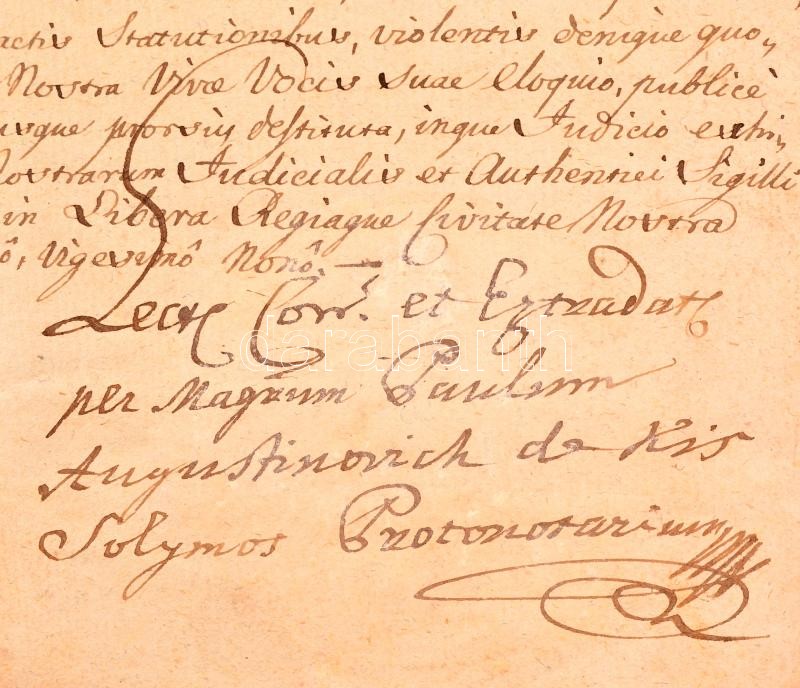 actis Statutionibus, violentis denique quo„
Nostra Vivæ Vocis suae eloquio, publicè
usque prorsus destituta, inque Judicio exhi„
Nostrarum Judicialis et Authentici Sigilli
in Libera Regiaque Civitate Nostra
ô, Vigesimô Nonô. —
Lect Corr. et Extradat
per Magrum Paulum
Augustinovich de Kis
Solymos Protonotarium
darabanth